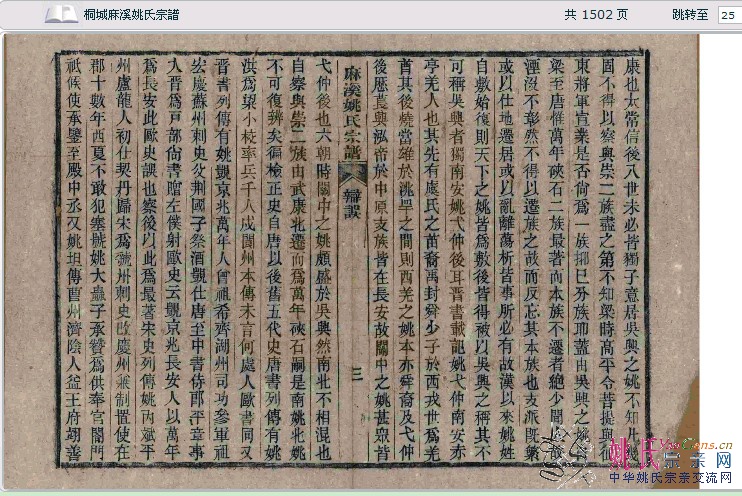 桐城麻溪姚氏宗譜
共 1502 页
跳转至
25
康也太常信後八世未必皆獨子意居吳興之姚不知凡幾
固不得以察與崇二族盡之第不知梁時高平令菩提與征
東將軍宣業是否尚為一族抑已分族耶蓋由吳興之姚
梁至唐惟萬年硤石二族最著而本族不遷者絕少聞
湮沒不彰然不得以遷族之哉而反忘其本族也支派既
或以仕地遷居或以亂離蕩析皆事所必有故漢以來姚姓
自敷始復則天下之姚皆為敷後皆得被以吳興之稱其不
可稱吳興者獨南安姚弋仲後耳晉書載記姚弋仲南安赤
亭羌人也其先有虞氏之苗裔禹封舜少子於西戎世為羌
首其後燒當雄於洮罕之間則西羌之姚本亦舜裔及弋仲
後歷萇興泓帝於中原支族皆在長安故關中之姚甚眾皆
麻溪姚氏宗譜
辯誤
三
弋仲後也六朝時關中之姚頗盛於吳興然南北不相混也
自察與崇二族由武康北遷而為萬年硤石嗣是南姚北姚
不可復辨矣徧檢正史自唐以後舊五代史唐書列傳有姚
洪為梁小校率兵千人戍閬州本傳未言何處人歐書同又
晉書列傳有姚顗京兆萬年人曾祖希齊湖州司功參軍祖
宏慶蘇州刺史父荆國子祭酒顗仕唐至中書侍郎平章事
入晉為戸部尚書贈左僕射歐史云顗京兆長安人以萬年
為長安此歐史誤也察後以此為最著宋史列傳姚內斌平
州盧龍人初仕契丹歸宋為虢州刺史改慶州兼制置使在
郡十數年西夏不敢犯塞號姚大蟲子承贊為供奉官閤門
祗候使承鑒至殿中丞又姚坦傳曹州濟陰人益王府翊善
姚氏YaoCens.cn
宗亲网
中华姚氏宗亲交流网